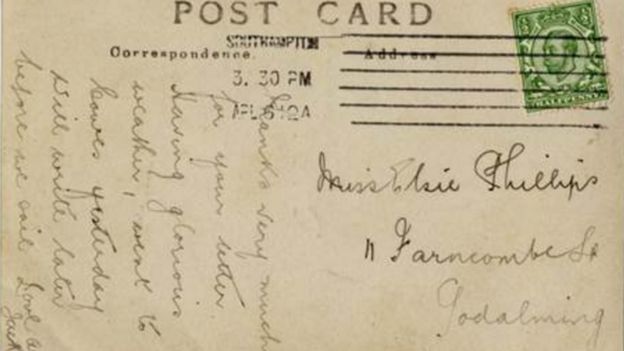 POST CARD
Correspondence.
Address
SOUTHAMPTON
3.30 PM
APL 6 12A
HALFPENNY
Thanks very much
for your letter.
Having glorious
weather, went to
Cowes yesterday
Will write later
before we sail Love
Jack
Miss Elsie Phillips
11 Farncombe St
Godalming